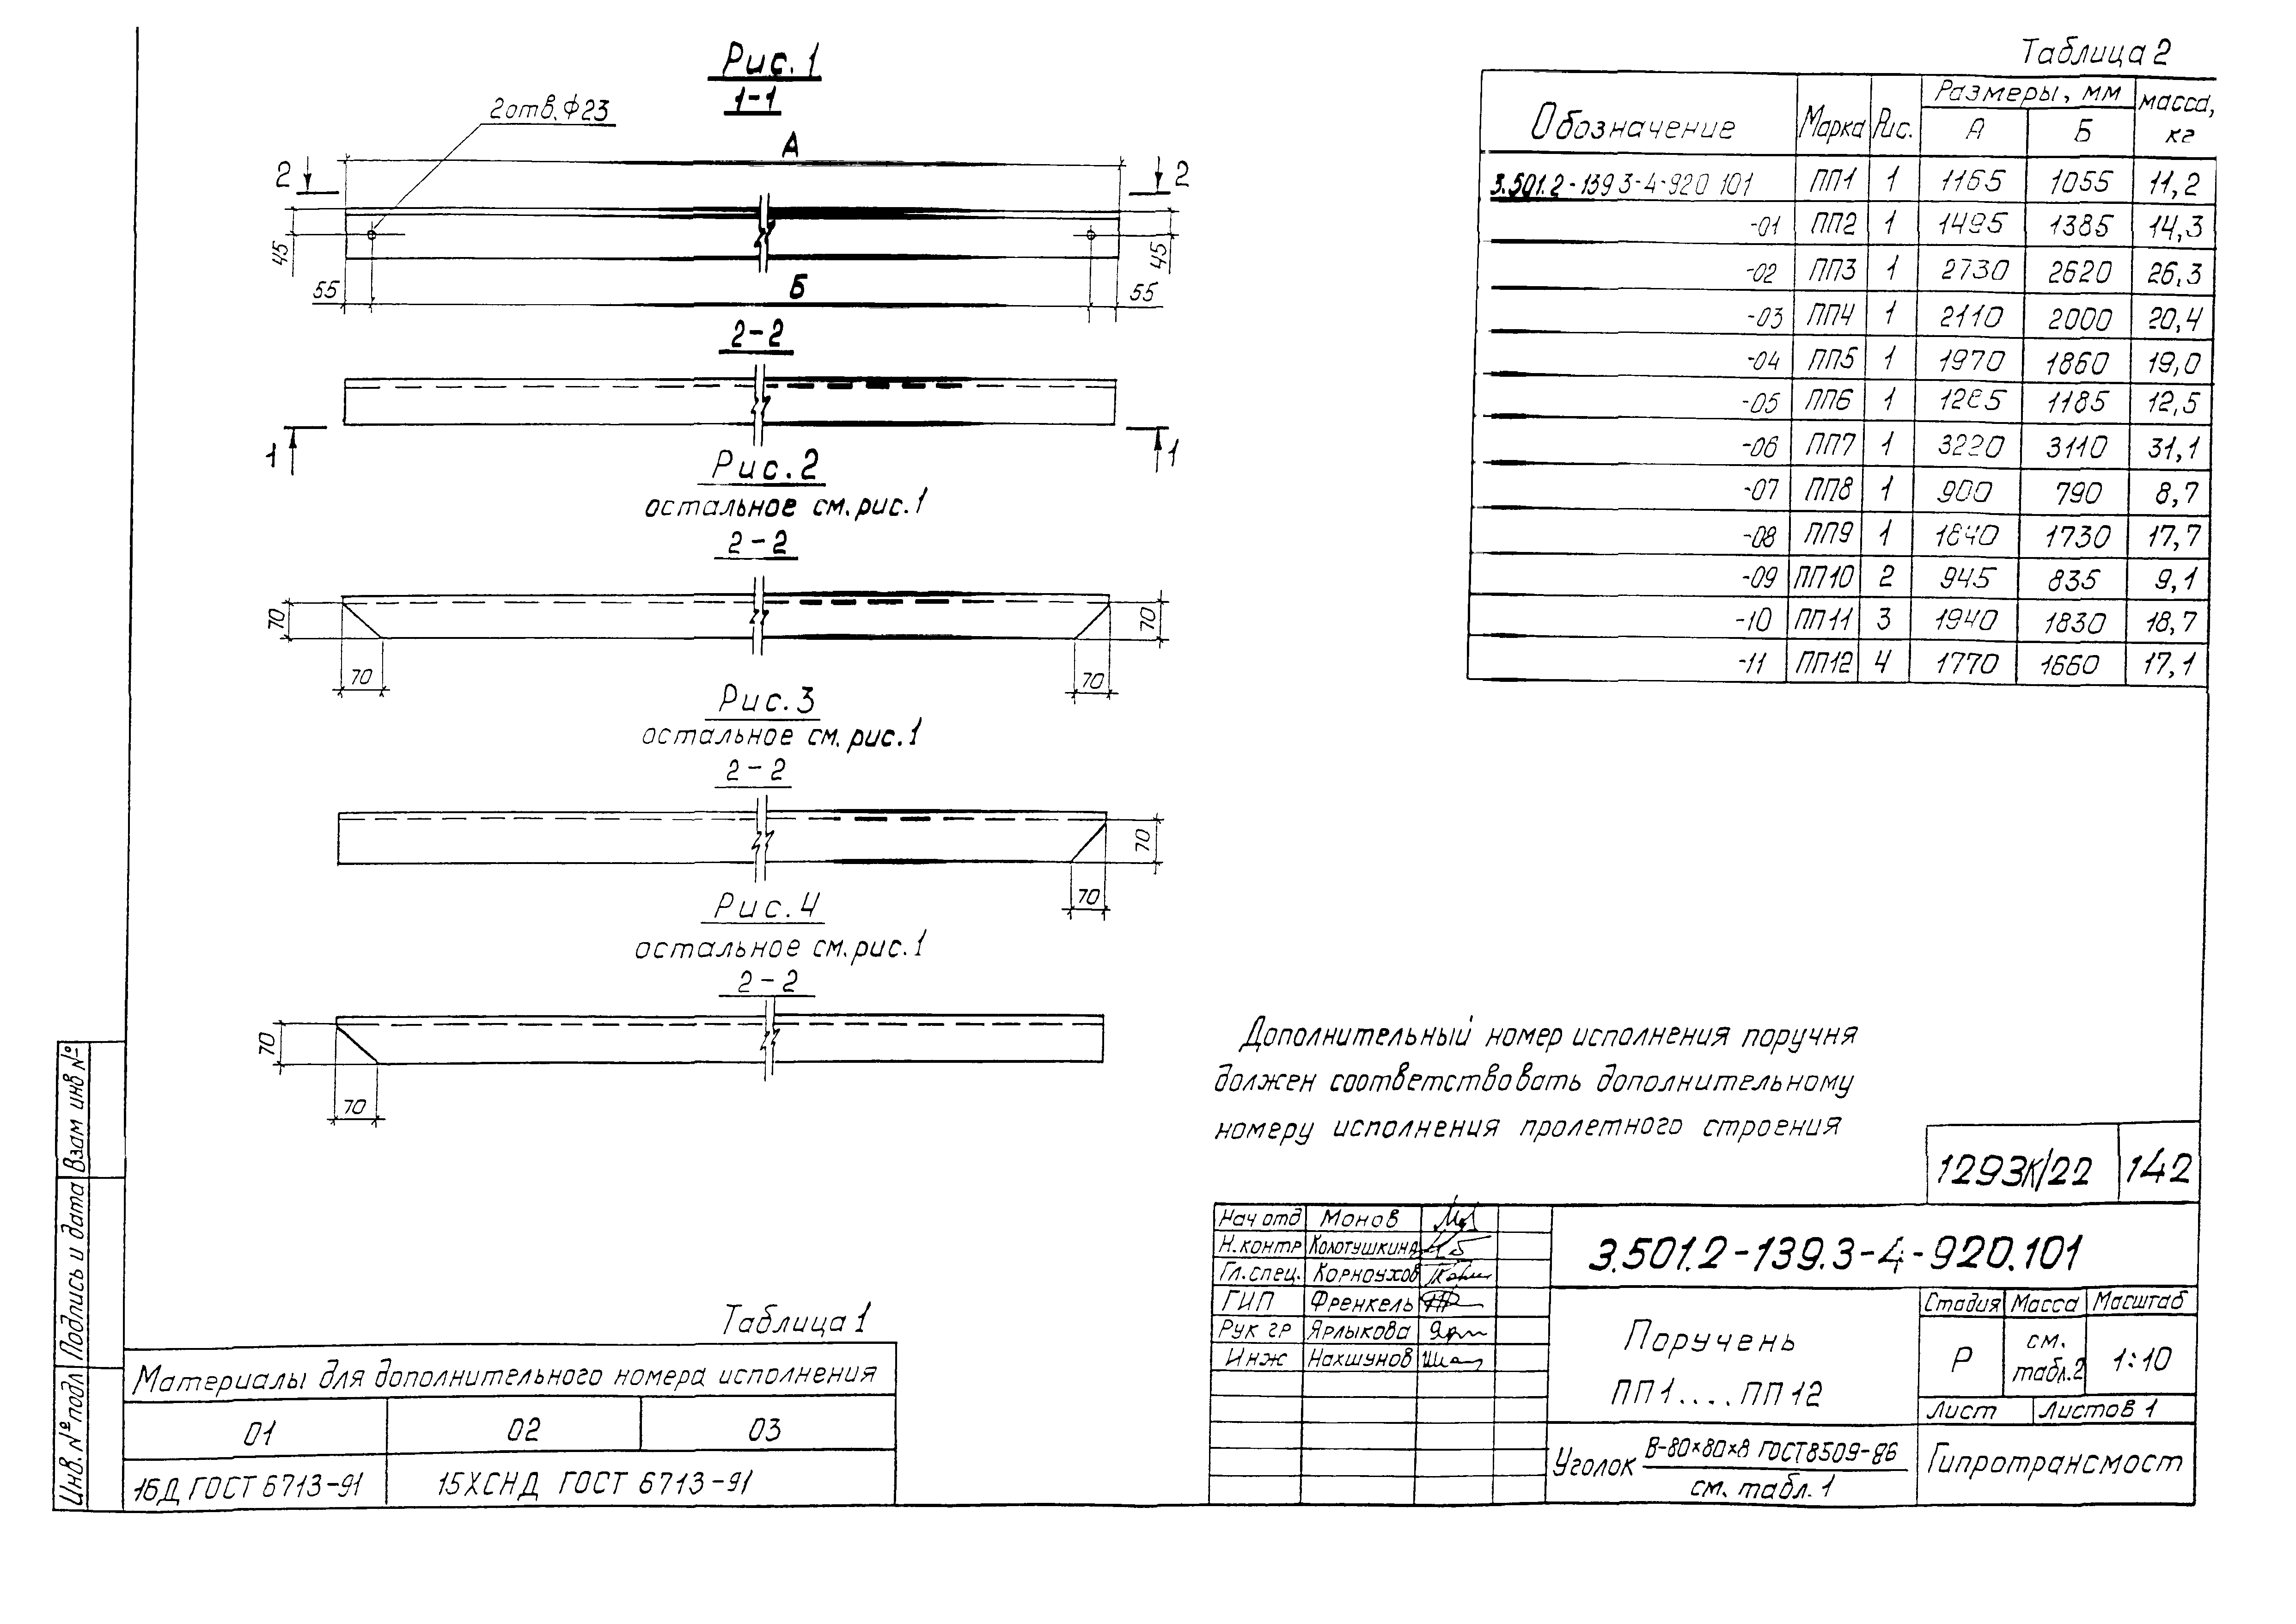 Рис. 1
1-1
2 отв. Ф23
А
2
2
45
45
55
Б
55
2-2
1
1
Рис. 2
остальное см. рис. 1
2-2
70
70
70
70
Рис. 3
остальное см. рис. 1
2-2
70
70
Рис. 4
остальное см. рис. 1
2-2
70
70
Таблица 2
Обозначение Марка Рис. Размеры, мм масса, кг
А Б
3.501.2-139 3-4-920 101 ПП1 1 1165 1055 11,2
-01 ПП2 1 1495 1385 14,3
-02 ПП3 1 2730 2620 26,3
-03 ПП4 1 2110 2000 20,4
-04 ПП5 1 1970 1860 19,0
-05 ПП6 1 1185 12,5
-06 ПП7 1 3220 3110 31,1
-07 ПП8 1 900 790 8,7
-08 ПП9 1 1840 1730 17,7
-09 ПП10 2 945 835 9,1
-10 ПП11 3 1940 1830 18,7
-11 ПП12 4 1770 1660 17,1
Дополнительный номер исполнения поручня
должен соответствовать дополнительному
номеру исполнения пролетного строения
1293К/22 142
Нач отд Монов
Н. контр Колотушкина
Гл. спец. Корноухов
ГИП Френкель
Рук гр Ярлыкова
Инж Нахшунов
3.501.2-139.3-4-920.101
Поручень
ПП1....ПП12
Стадия Масса Масштаб
Р см. табл. 2 1:10
Лист Листов 1
Уголок В-80×80×8 ГОСТ 8509-86
см. табл. 1
Гипротрансмост
Таблица 1
Материалы для дополнительного номера исполнения
01 02 03
16Д ГОСТ 6713-91 15ХСНД ГОСТ 6713-91
Взам инв №
Подпись и дата
Инв. № подл